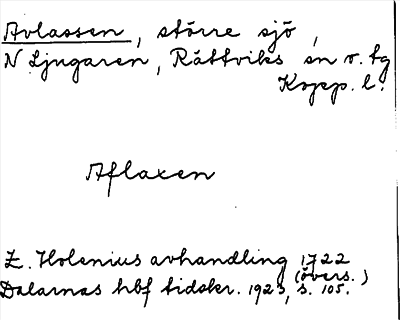 Avlassen, större sjö,
N Ljugaren, Rättviks sn o. tg
Kopp. l.
Aflaxen
E. Holenius avhandling 1722
(övers.)
Dalarnas hbf tidskr. 1923, s. 105.